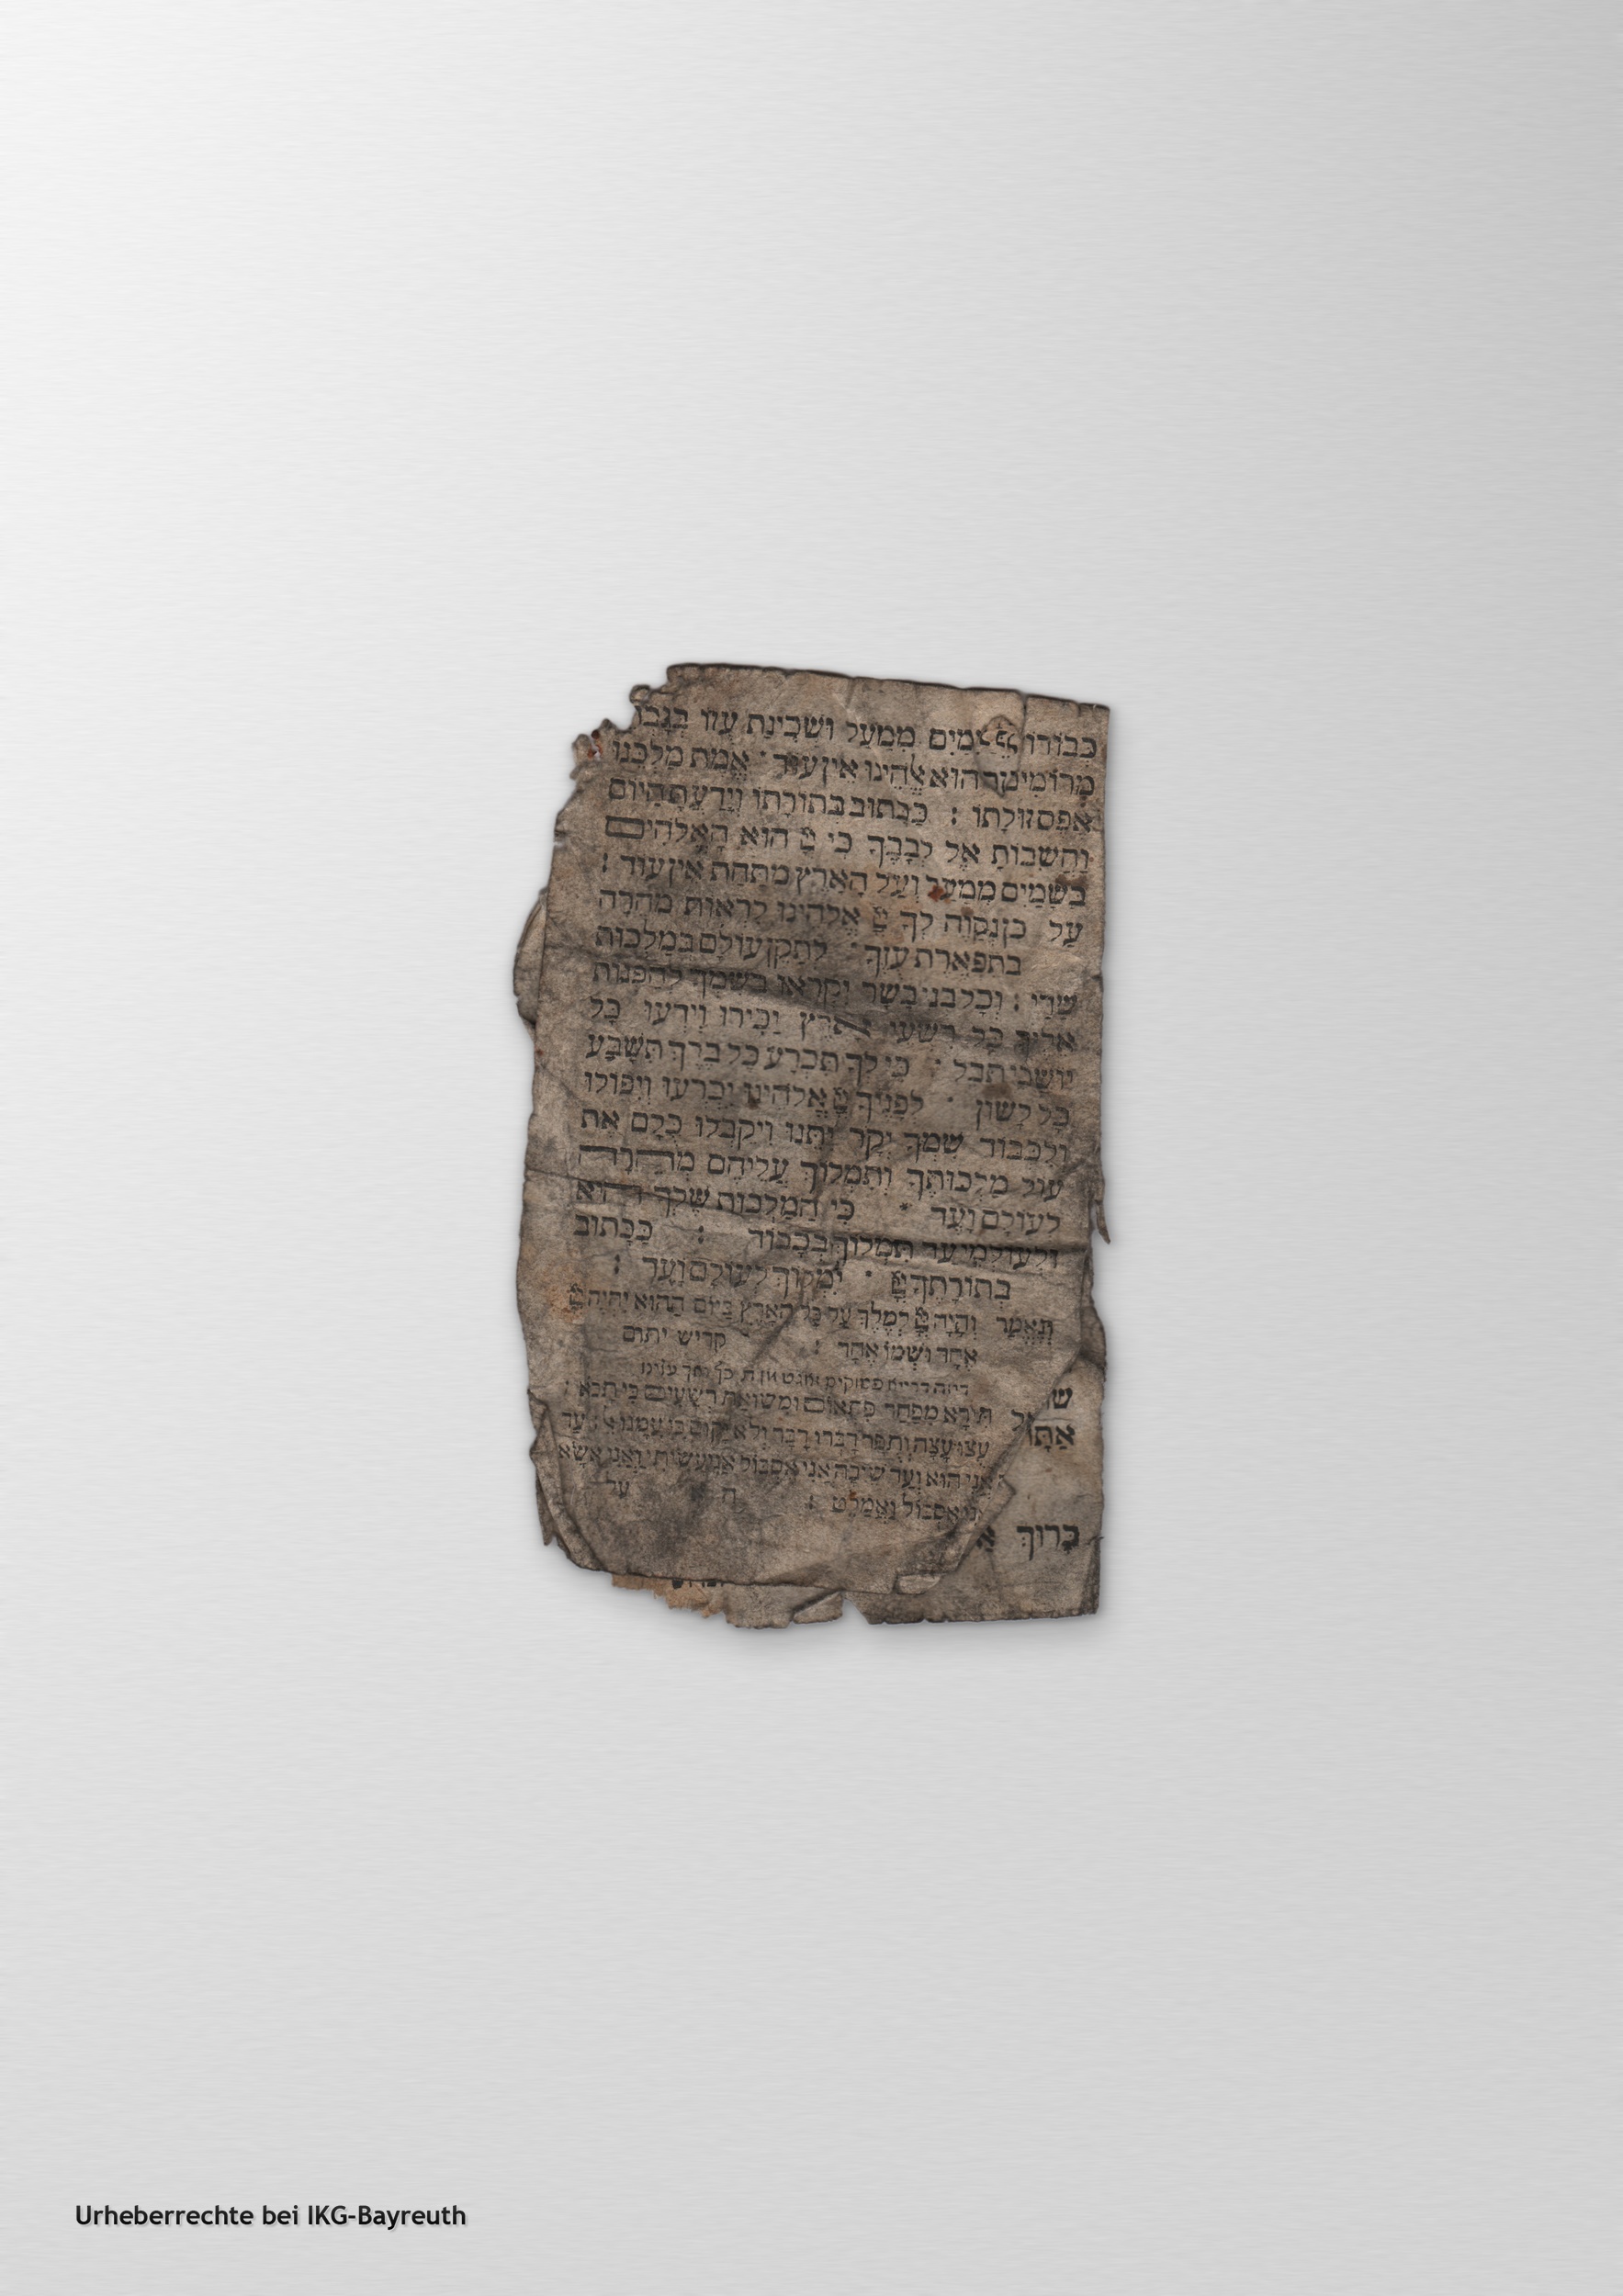 כְּבוֹדוֹ מִמַּעַל וּשְׁכִינַת עֻזּוֹ
מְרוֹמִים הוּא אֱלֹהֵינוּ אֵין עוֹד · אֱמֶת מַלְכֵּנוּ
אֶפֶס זוּלָתוֹ : כַּכָּתוּב בְּתוֹרָתוֹ וְיָדַעְתָּ הַיּוֹם
וַהֲשֵׁבוֹתָ אֶל לְבָבֶךָ כִּי יְיָ הוּא הָאֱלֹהִים
בַּשָּׁמַיִם מִמַּעַל וְעַל הָאָרֶץ מִתָּחַת אֵין עוֹד :
עַל כֵּן נְקַוֶּה לְךָ יְיָ אֱלֹהֵינוּ לִרְאוֹת מְהֵרָה
בְּתִפְאֶרֶת עֻזֶּךָ · לְתַקֵּן עוֹלָם בְּמַלְכוּת
שַׁדַּי : וְכָל בְּנֵי בָשָׂר יִקְרְאוּ בִשְׁמֶךָ לְהַפְנוֹת
אֵלֶיךָ כָּל רִשְׁעֵי אָרֶץ יַכִּירוּ וְיֵדְעוּ כָּל
יוֹשְׁבֵי תֵבֵל · כִּי לְךָ תִּכְרַע כָּל בֶּרֶךְ תִּשָּׁבַע
כָּל לָשׁוֹן · לְפָנֶיךָ יְיָ אֱלֹהֵינוּ יִכְרְעוּ וְיִפּוֹלוּ
וְלִכְבוֹד שִׁמְךָ יְקָר יִתֵּנוּ וִיקַבְּלוּ כֻלָּם אֶת
עוֹל מַלְכוּתֶךָ וְתִמְלוֹךְ עֲלֵיהֶם מְהֵרָה
לְעוֹלָם וָעֶד · כִּי הַמַּלְכוּת שֶׁלְּךָ הִיא
וּלְעוֹלְמֵי עַד תִּמְלוֹךְ בְּכָבוֹד : כַּכָּתוּב
בְּתוֹרָתֶךָ יְיָ · יִמְלוֹךְ לְעוֹלָם וָעֶד :
וְנֶאֱמַר וְהָיָה יְיָ לְמֶלֶךְ עַל כָּל הָאָרֶץ בַּיּוֹם הַהוּא יִהְיֶה יְיָ
אֶחָד וּשְׁמוֹ אֶחָד : קדיש יתום
פסוקים
תִּירָא מִפַּחַד פִּתְאוֹם וּמִשּׁוֹאַת רְשָׁעִים כִּי תָבֹא :
עֻצוּ עֵצָה וְתֻפָר דַּבְּרוּ דָבָר וְלֹא יָקוּם כִּי עִמָּנוּ אֵל : עַד
אֲנִי הוּא וְעַד שֵׂיבָה אֲנִי אֶסְבּוֹל אֲנִי עָשִׂיתִי וַאֲנִי אֶשָּׂא
אֶסְבּוֹל וַאֲמַלֵּט : על
בָּרוּךְ
Urheberrechte bei IKG-Bayreuth